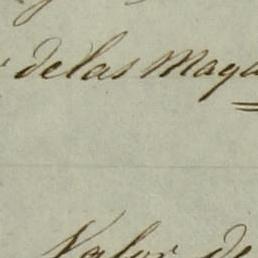 delas Maga
Valor de